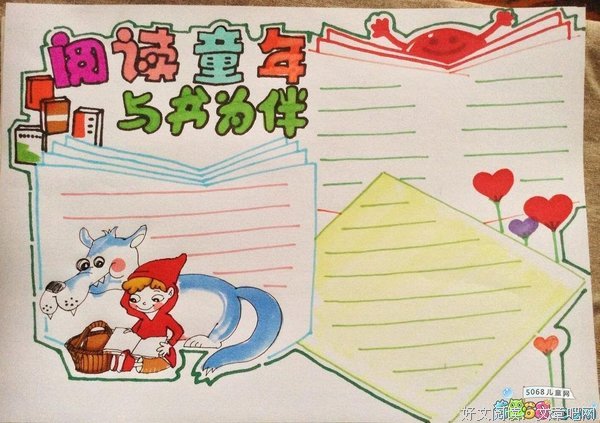 阅读童年
与书为伴
5068儿童网
好文阅读 文章吧网